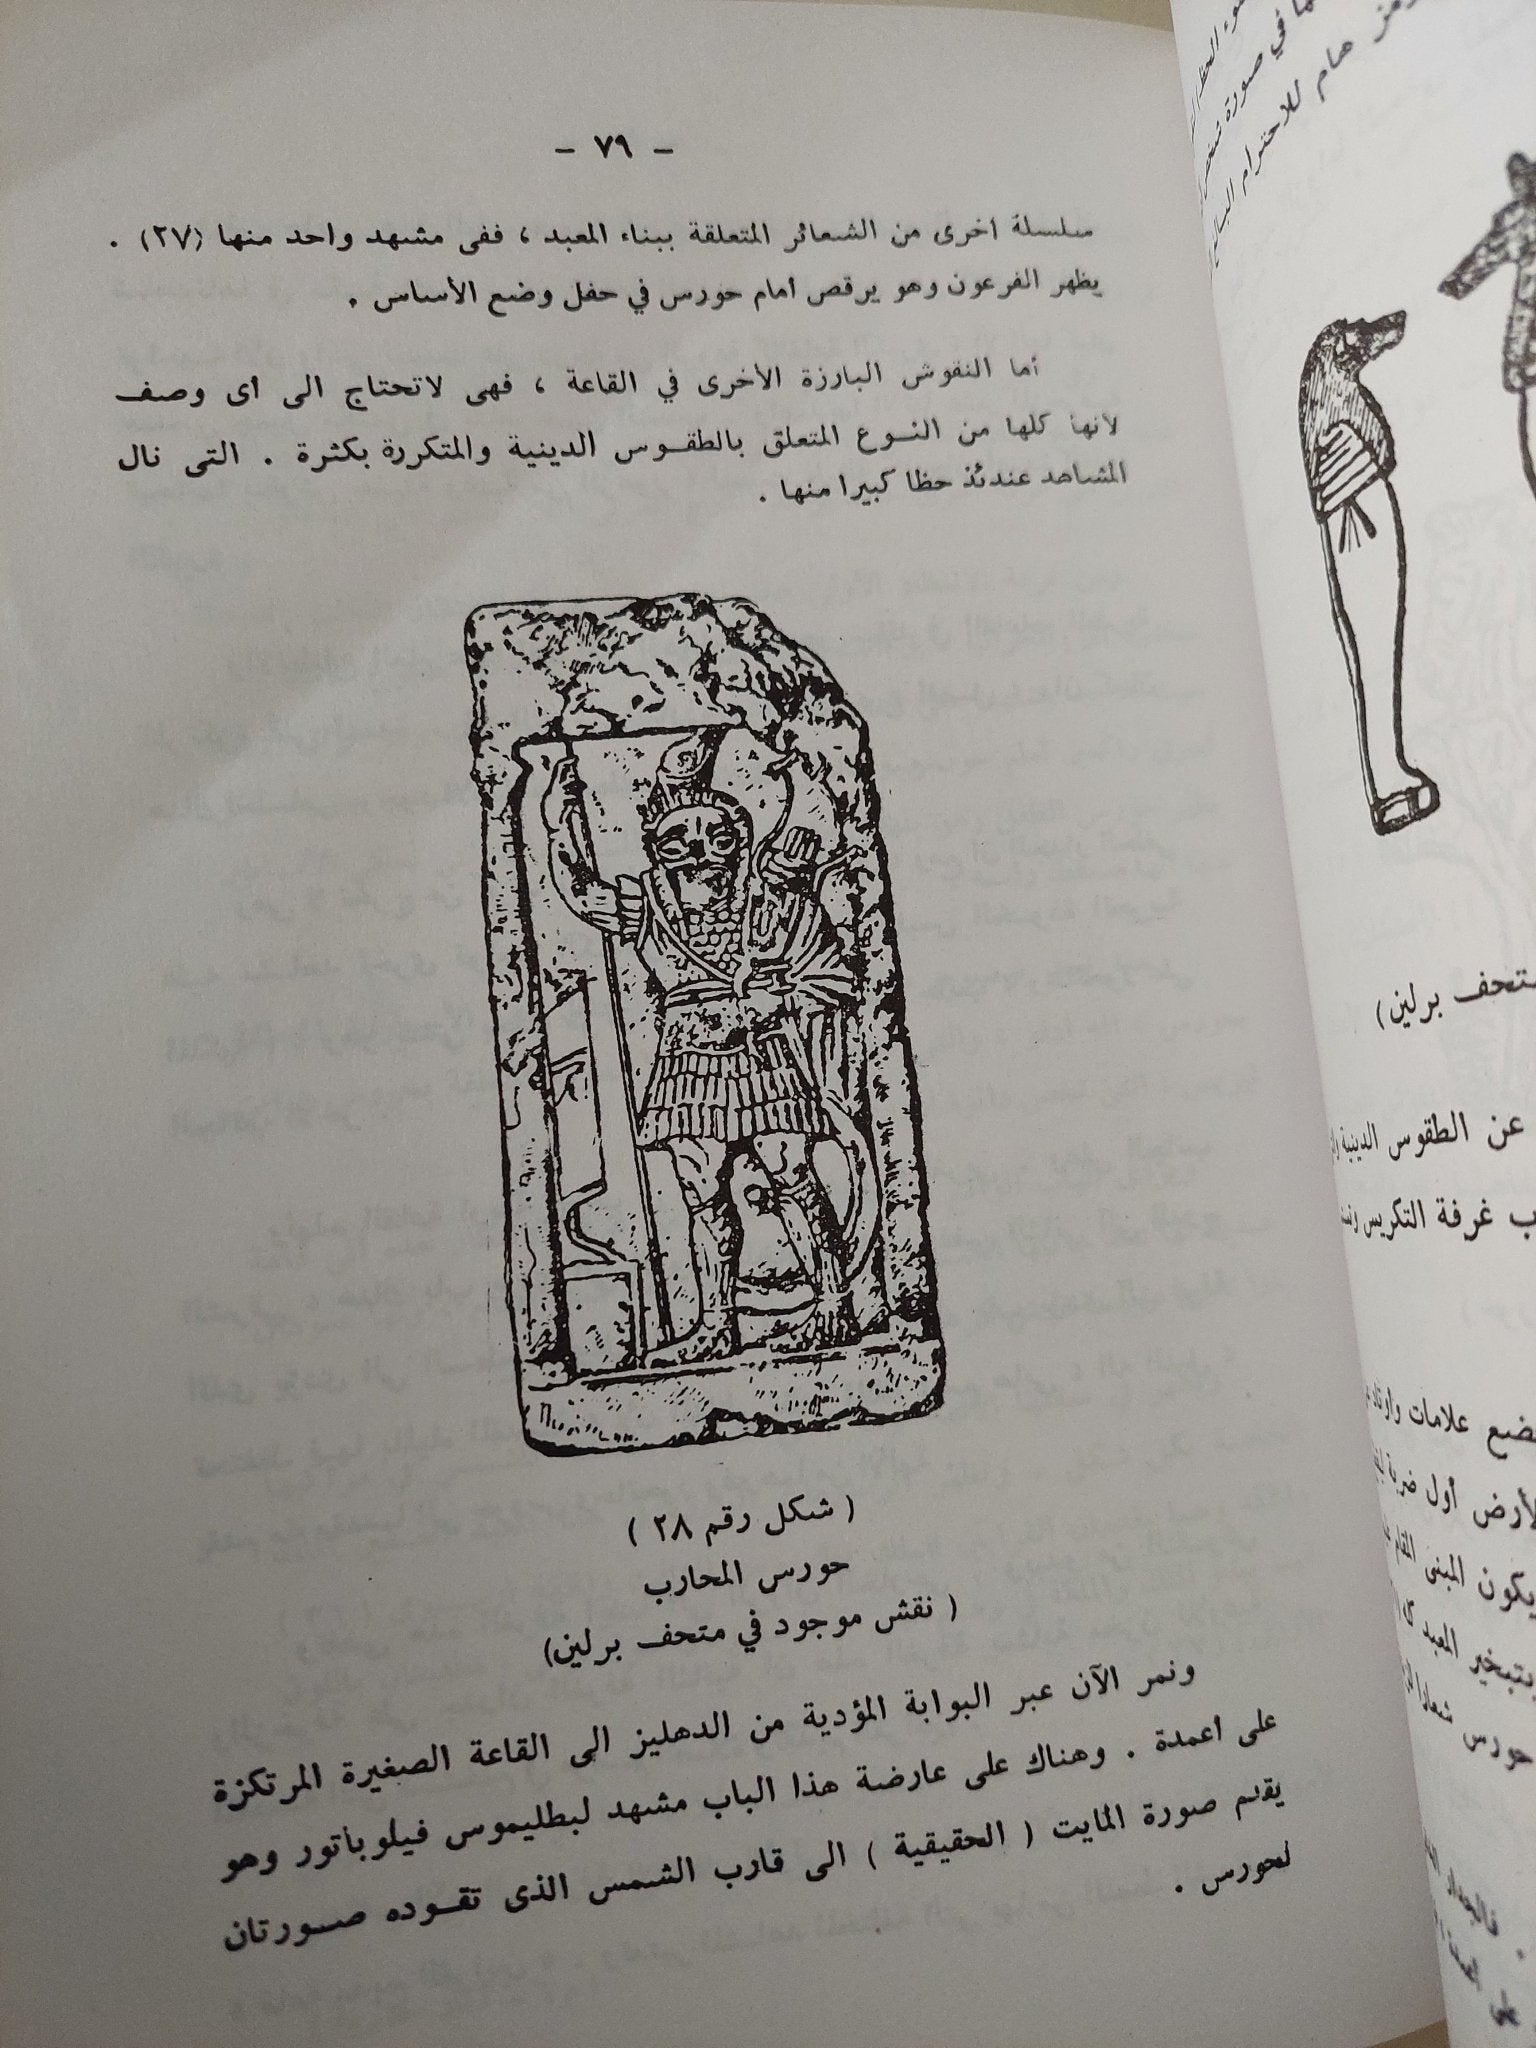 - ٧٩ -
سلسلة أخرى من الشعائر المتعلقة ببناء المعبد ، ففى مشهد واحد منها (٢٧) .
يظهر الفرعون وهو يرقص امام حورس في حفل وضع الأساس .
أما النقوش البارزة الأخرى في القاعة ، فهى لاتحتاج الى اى وصف
لأنها كلها من النوع المتعلق بالطقوس الدينية والمتكررة بكثرة . التى نال
المشاهد عندئذ حظا كبيرا منها .
( شكل رقم ٢٨ )
حورس المحارب
( نقش موجود في متحف برلين)
ونمر الآن عبر البوابة المؤدية من الدهليز الى القاعة الصغيرة المرتكزة
على اعمدة . وهناك على عارضة هذا الباب مشهد لبطليموس فيلوباتور وهو
يقدم صورة المايت ( الحقيقية ) الى قارب الشمس الذى تقوده صورتان
لحورس .
في صورة
هام للاحترام
متحف برلين)
عن الطقوس الدينية
غرفة التكريس
علامات
أول ضربة
يكون المبنى المقام
بتبخير المعبد
حورس